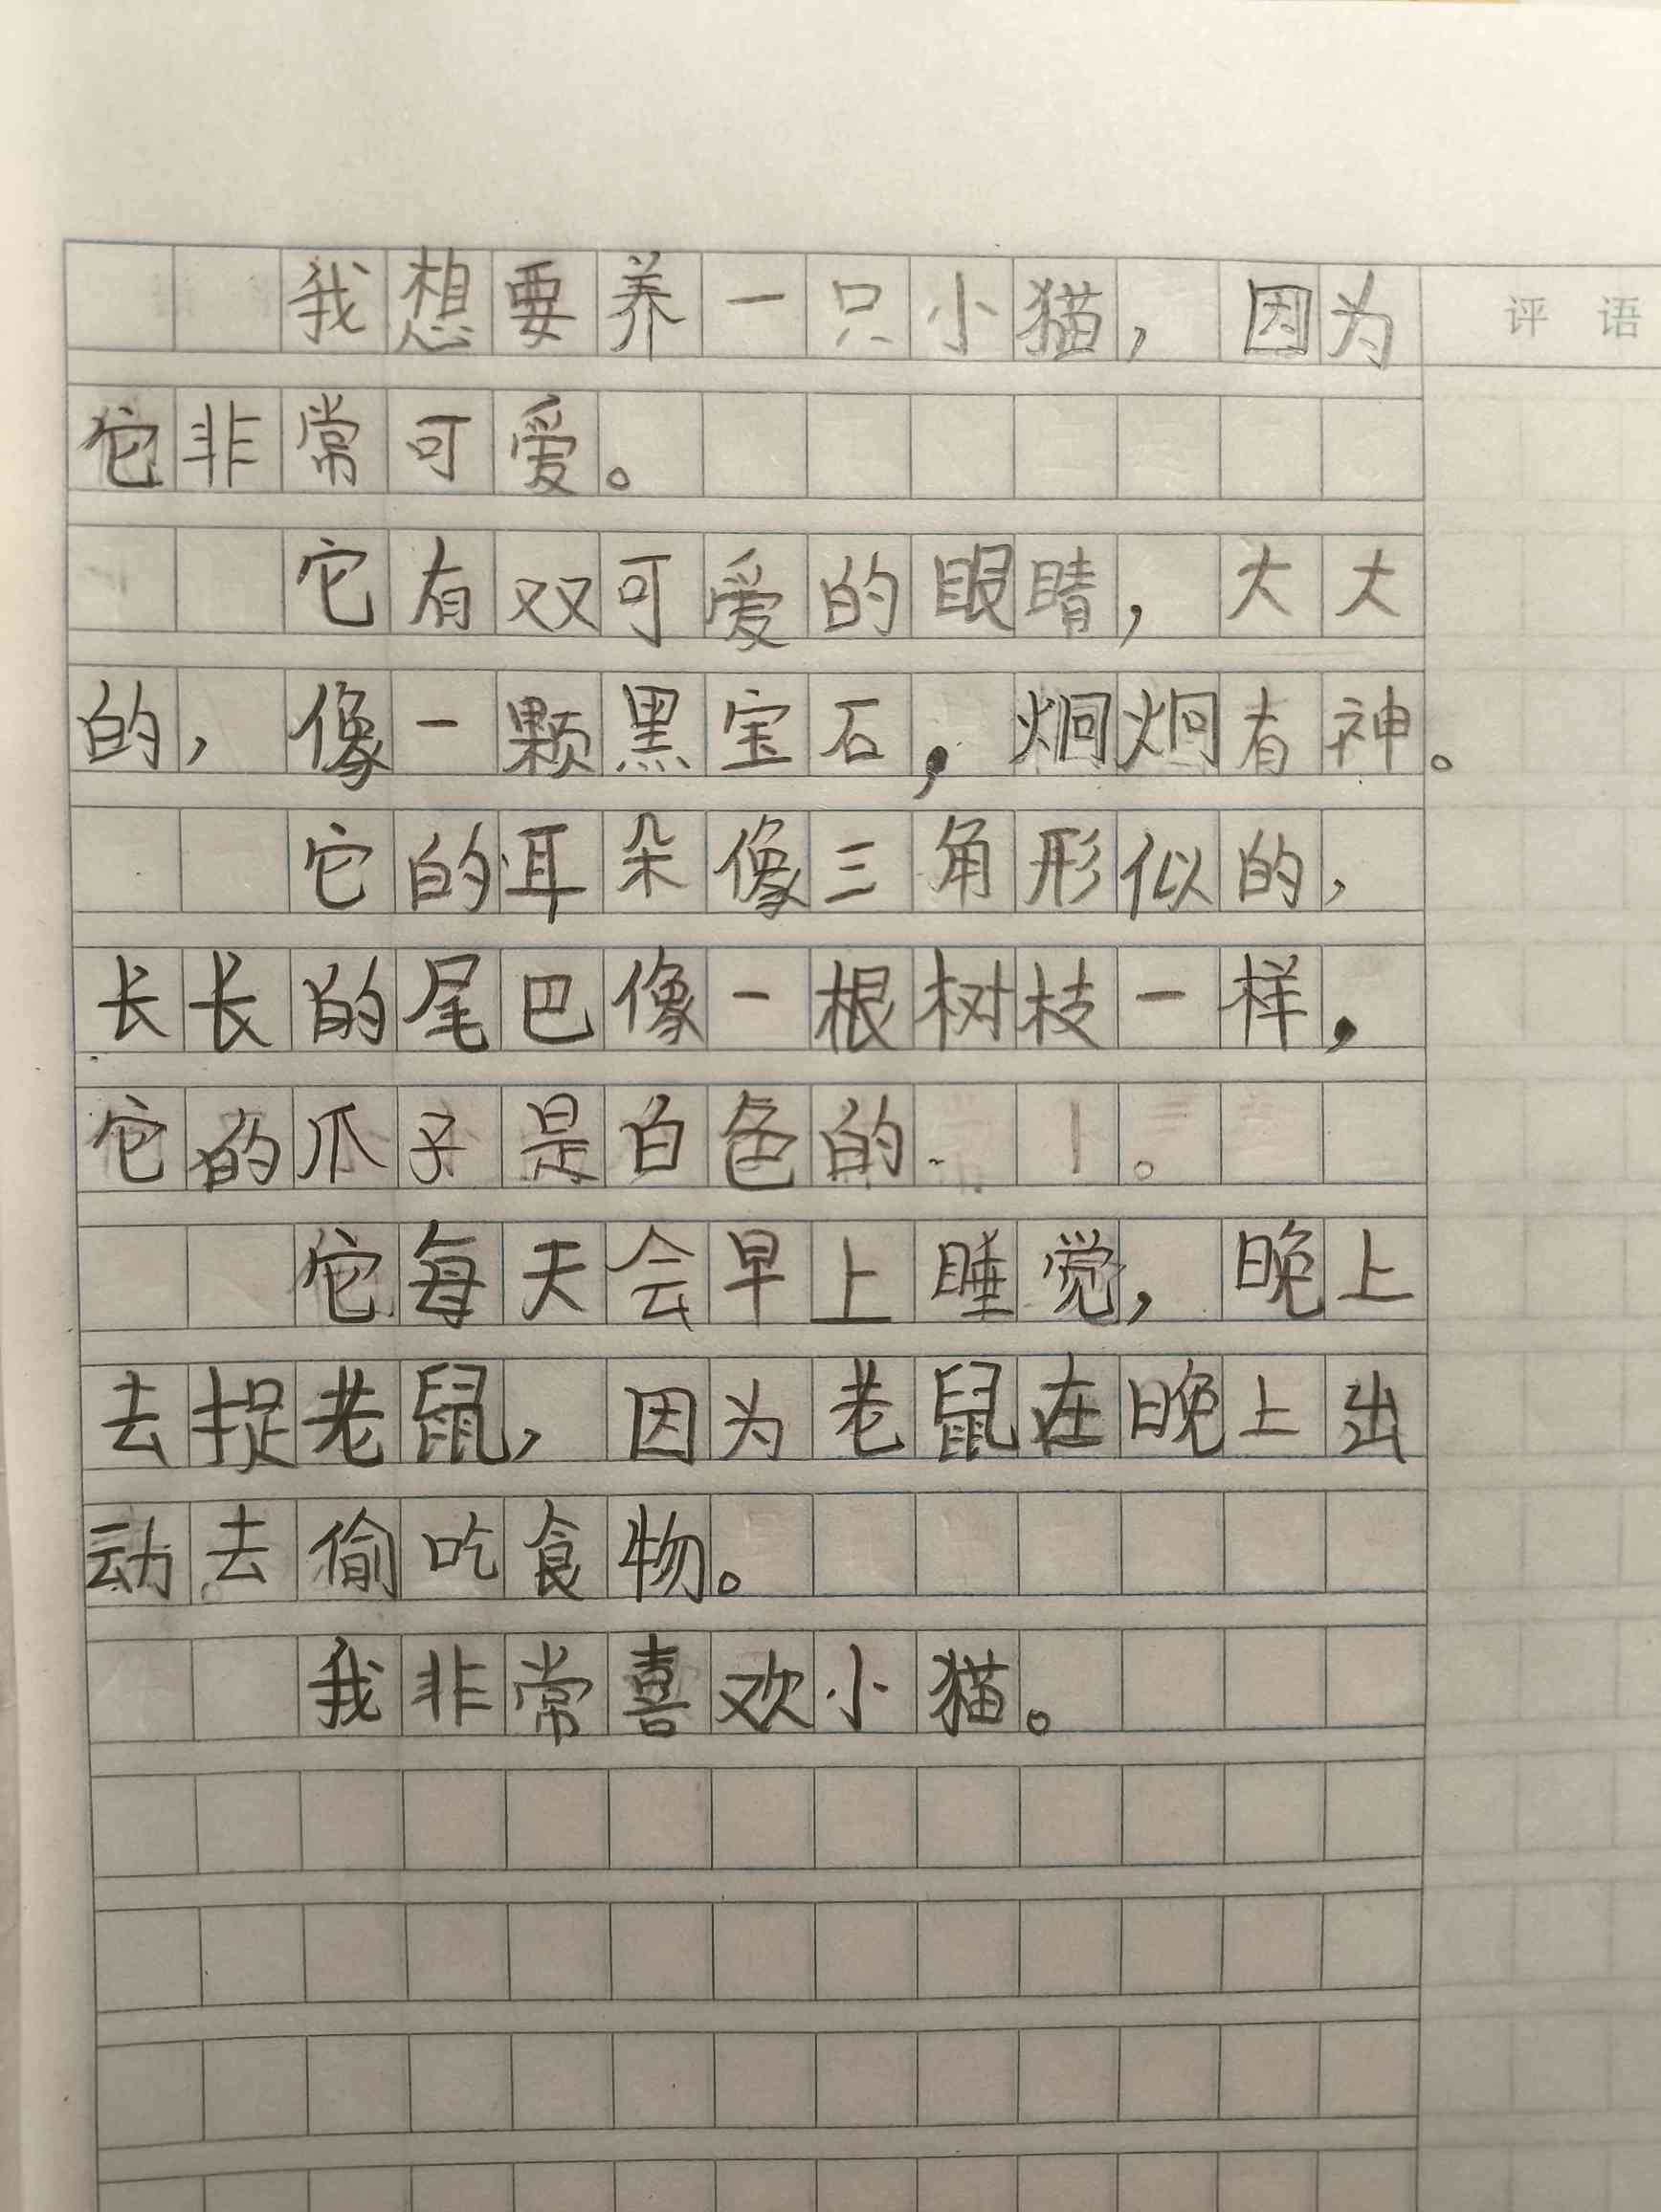 我想要养一只小猫，因为
评语
它非常可爱。
它有双可爱的眼睛，大大
的，像一颗黑宝石，炯炯有神。
它的耳朵像三角形似的，
长长的尾巴像一根树枝一样，
它的爪子是白色的。
它每天会早上睡觉，晚上
去捉老鼠，因为老鼠在晚上出
动去偷吃食物。
我非常喜欢小猫。